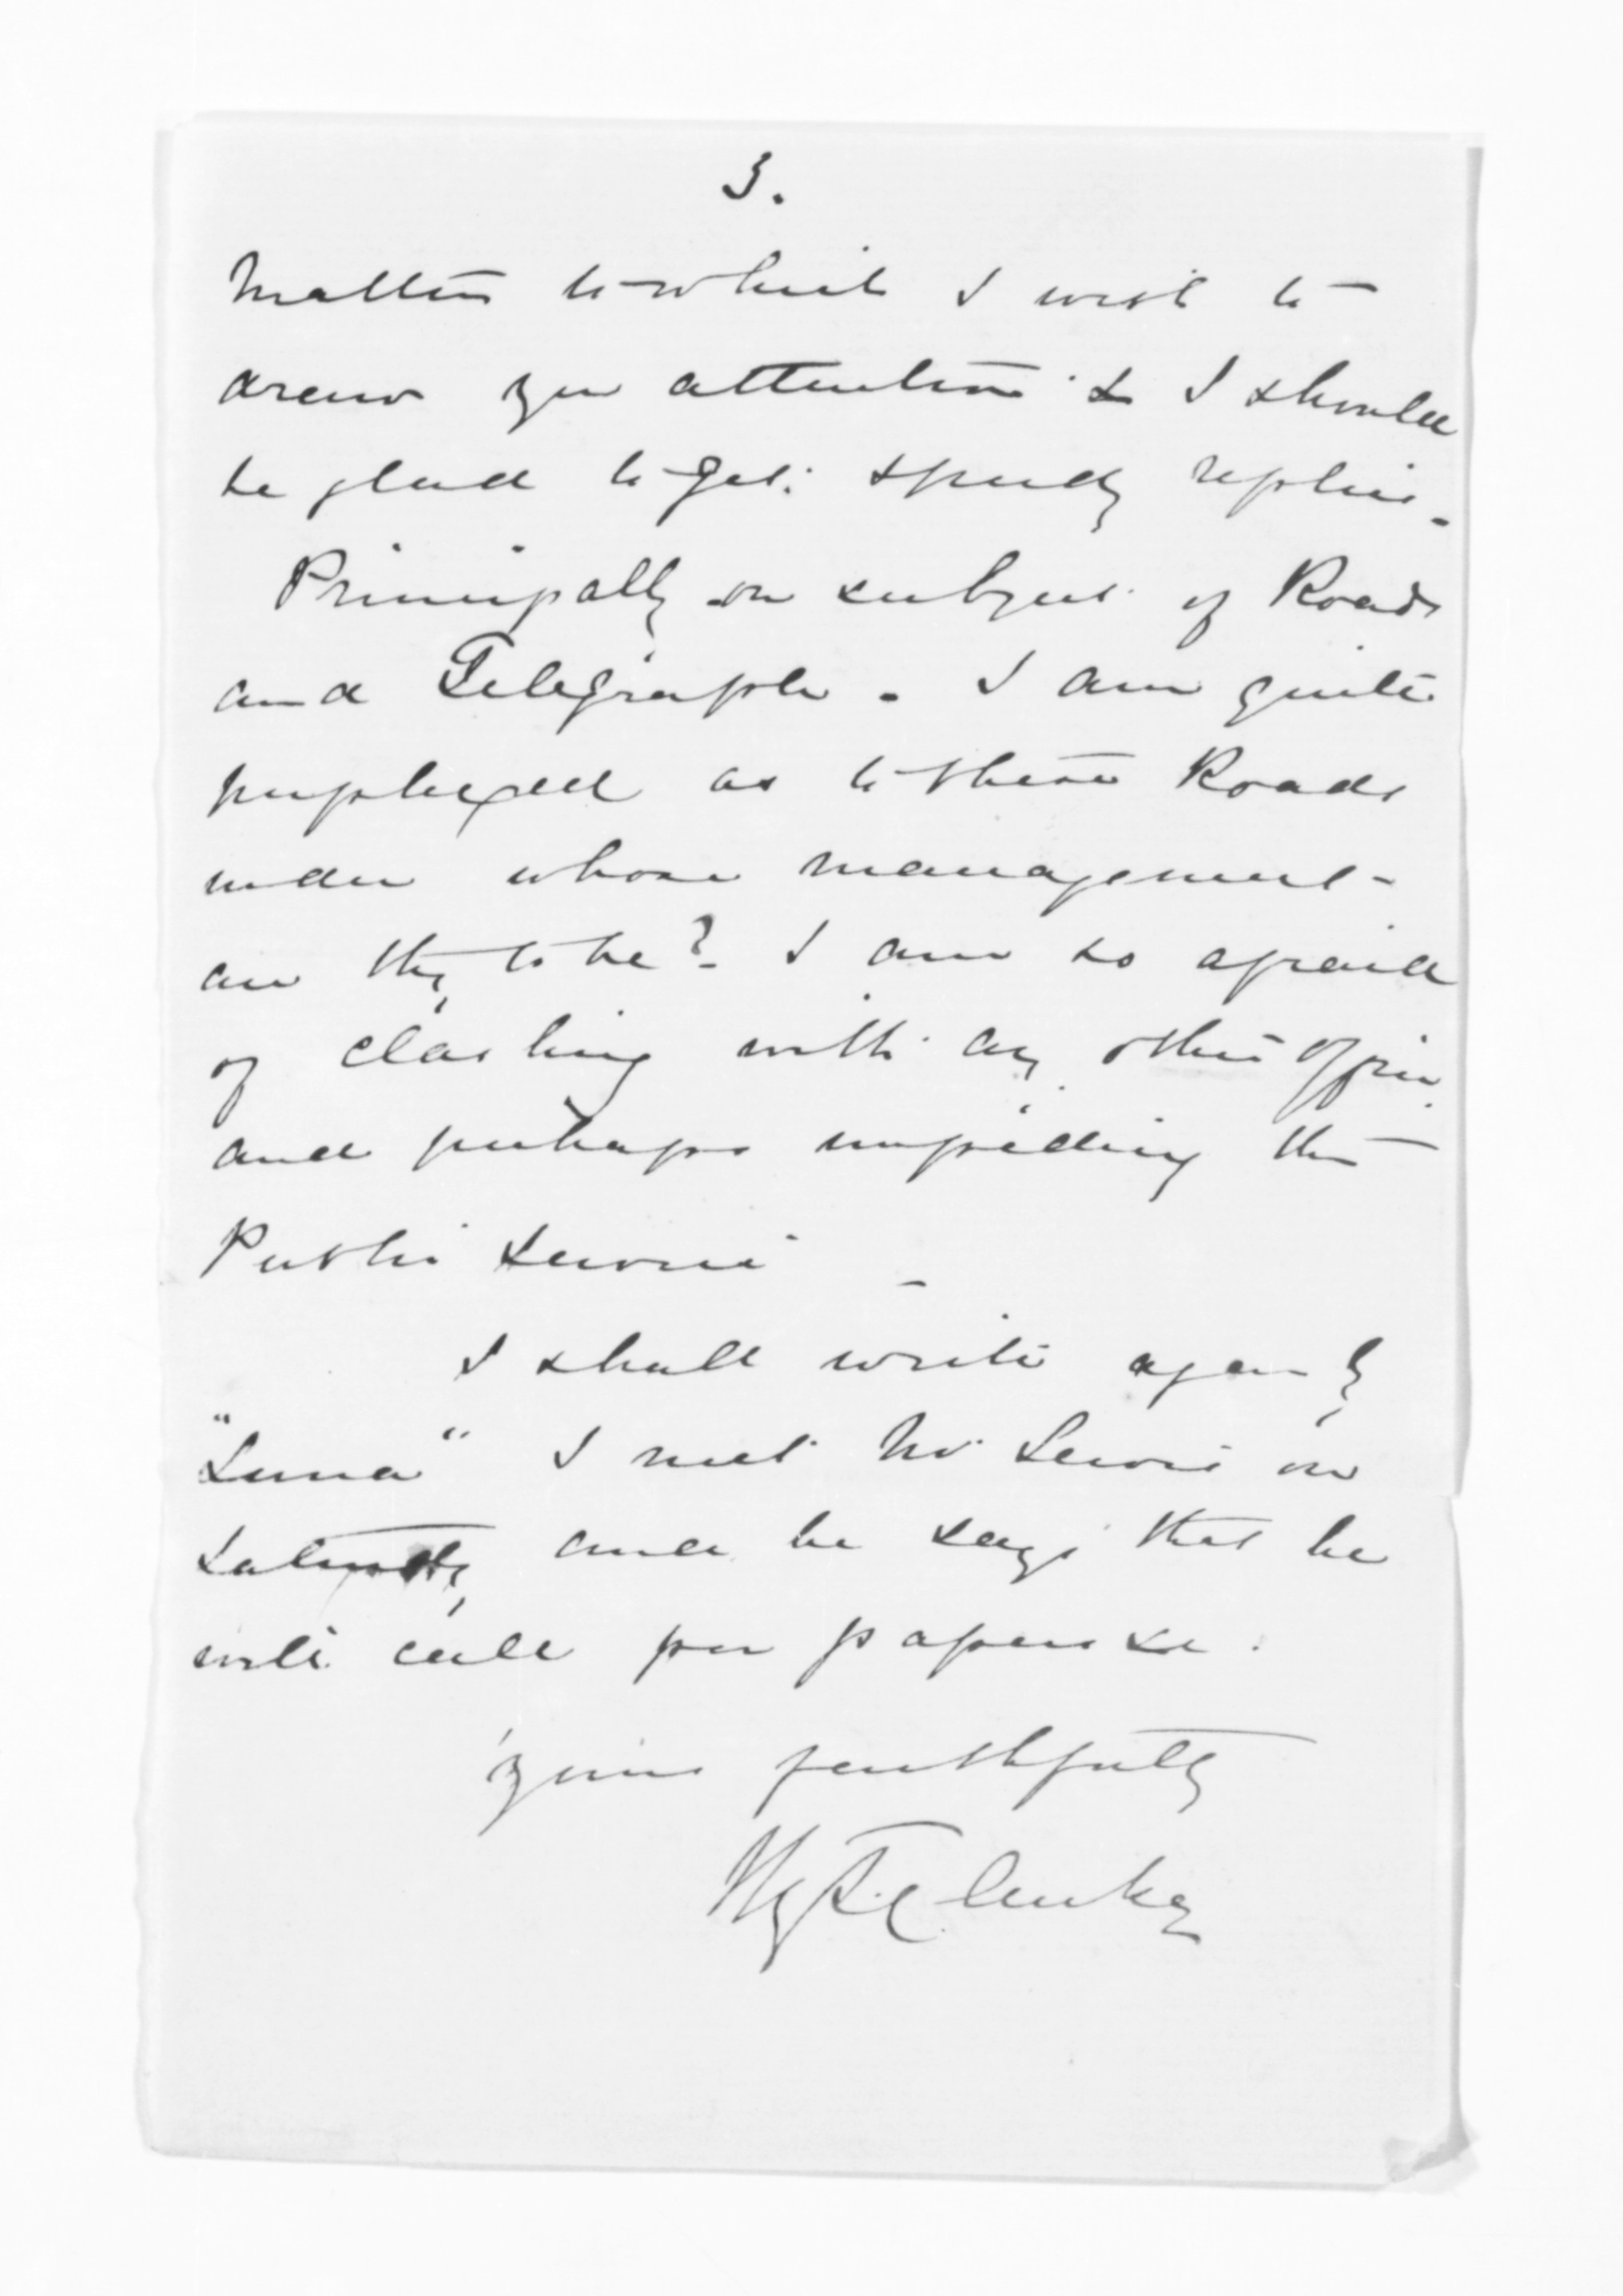 3.
Matters to which I wish to
draw your attention & I should
be glad to get speedy replies.
Principally on subject of Roads
and Telegraph. I am quite
perplexed as to these Roads
under whose management
are they to be? I am so afraid
of clashing with any other office
and perhaps impeding the
Public Service
I shall write again by
"Luna" I met Mr Lewis on
Saturday and he says that he
will call for papers &c.
Yours faithfully
H. T. Clarke